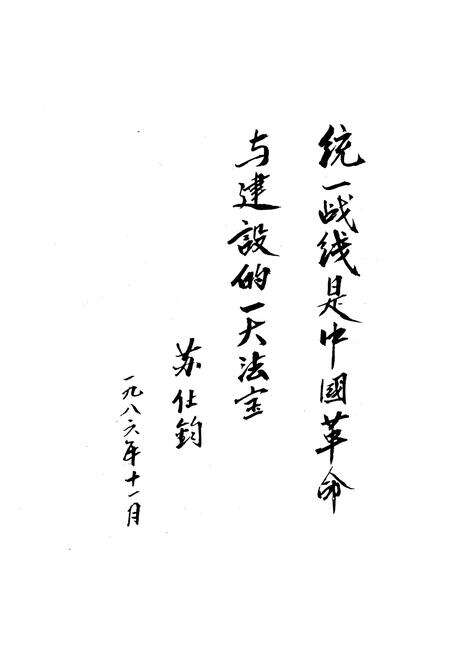 统一战线是中國革命
与建設的一大法宝
苏仕鈞
一九八六年十一月